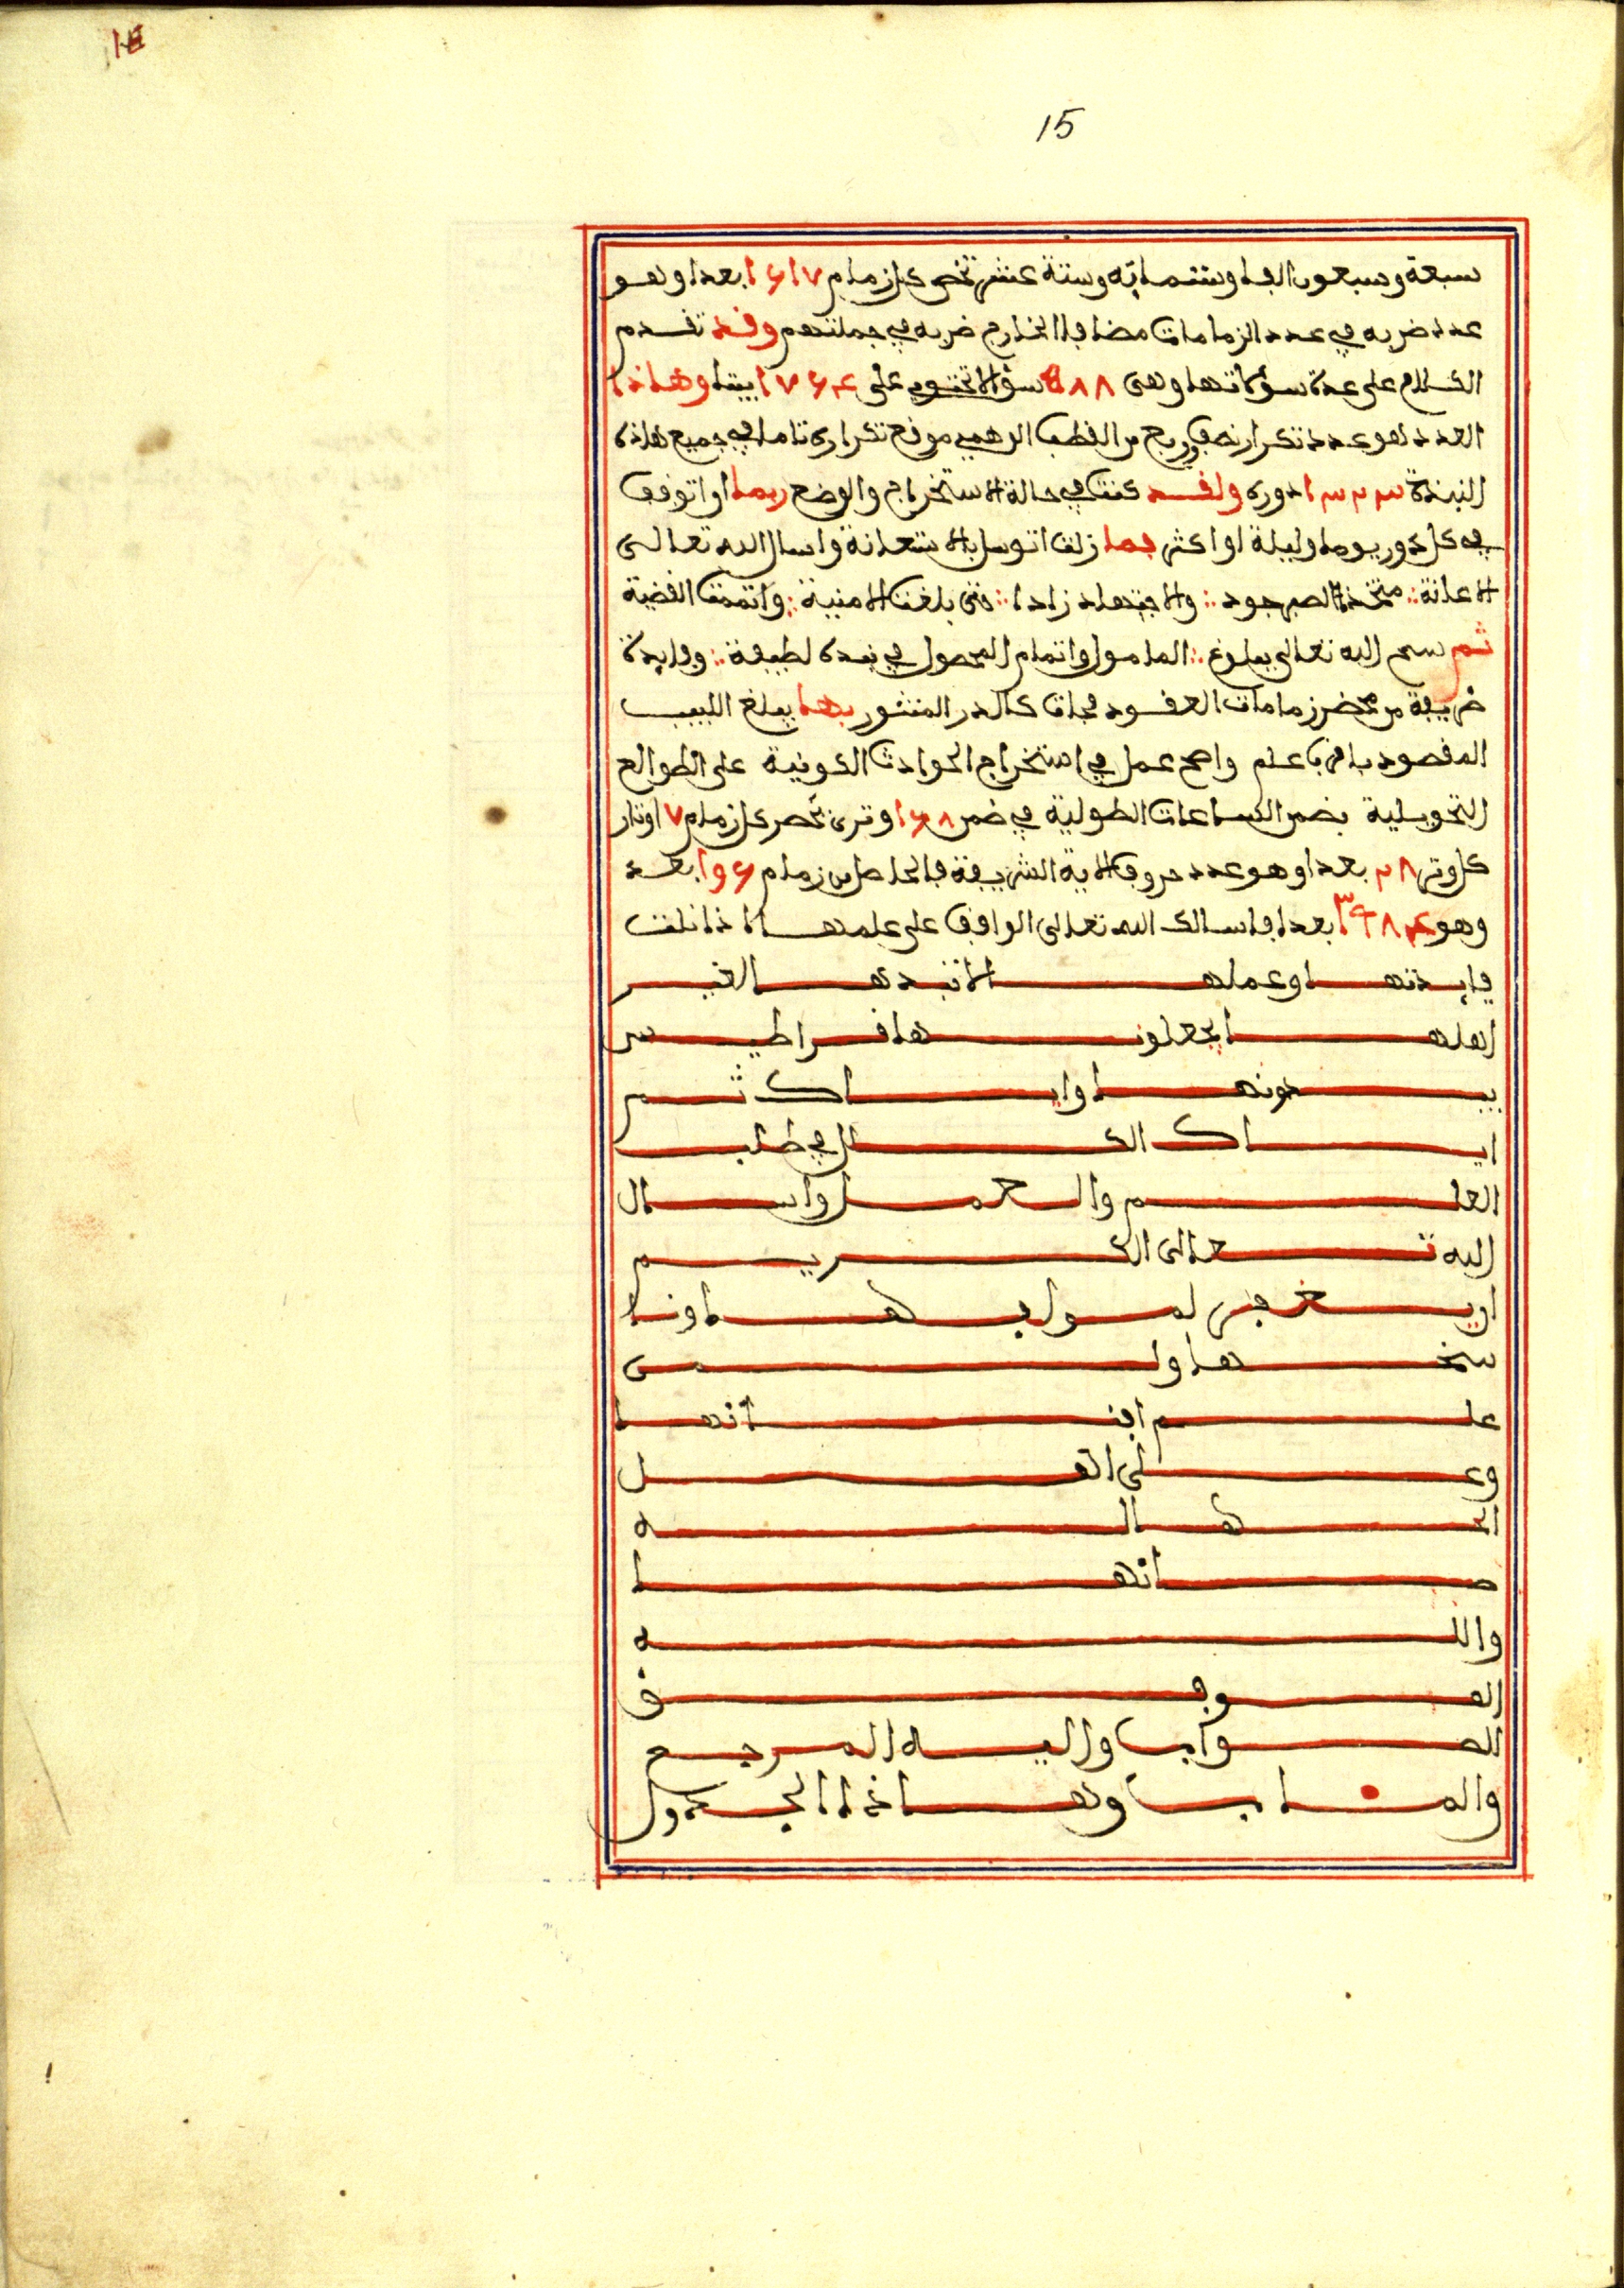 15
سبعة وسبعون الفا وستمائة وستة عشر تخص كل زمام بعدا وهو
عدد ضربه في عدد الزمامات مضافا لخارج ضربه في جملتهم وقد تقدم
الكلام على عدة سؤلاتها وهي سؤالا تحتوي على بيتا وهاذا
العدد هو عدد تكرار نصف وربع من القطب موقع تكراره تاما في جميع هاذه
النبذة دوره ولقد كنت في حالة الاستخراج والوضع ربما اتوقف
في كل دور يوما وليلة او اكثر فما زلت اتوسل بالاستعانة واسال الله تعالى
الاعانة متخذا الصبر جود والاجتهاد زادا حتى بلغت الامنية واتممت القضية
ثم سمح الله تعالى ببلوغ المامول واتمام المحصول في نبذة لطيفة وفايدة
ظريفة من محضر زمامات العقود فجات كالدر المنثور بها يبلغ اللبيب
المقصود باقرب علم واصح عمل في استخراج الحوادث الكونية على الطوالع
التحويلية بضمن الساعات الطولية في ضمن وترى تحصر كل زمام ٧ اوتار
كل وتر بعدا وهو عدد حروف الاية الشريفة فالحاصل من زمام بعد
وهو بعدا فاسالك الله تعالى الواقف على علمها اذا نلت
فايدتها وعملها لا تبدها لغير
اهلها يجعلونها قراطيس
يبدونها واياك ثم
اياك الكسل في طلب
العلم والعمل واسال
الله تعالى الكريم
ان يغفر لمولفها ونا
سخها ولمن
علم اتقانها
وعلى اهل
لها اله
صانها
والله
الموفق
الصواب واليه المرجع
والمئاب وهاذا الجدول